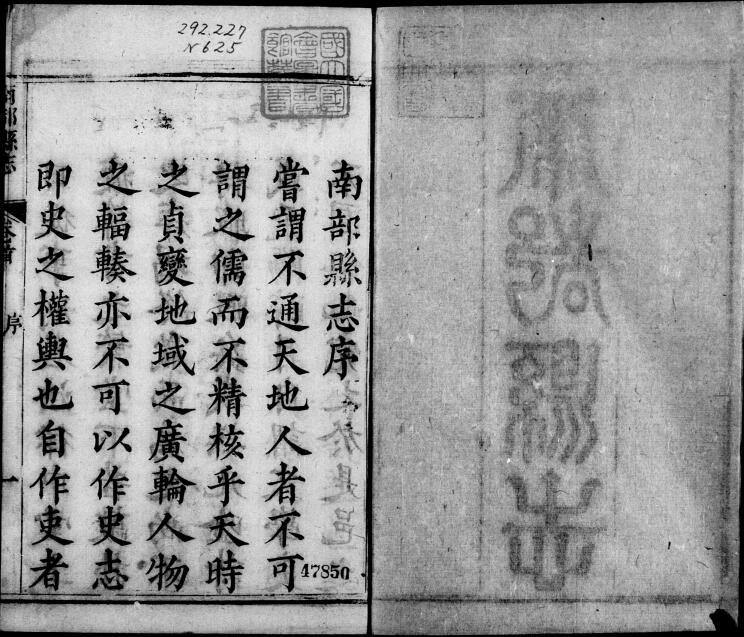 292.227
N625
南部縣志序
嘗謂不通天地人者不可
謂之儒而不精核乎天時
之貞變地域之廣輪人物
之輻輳亦不可以作史志
即史之權輿也自作吏者
47850
部縣志
卷首
序
一